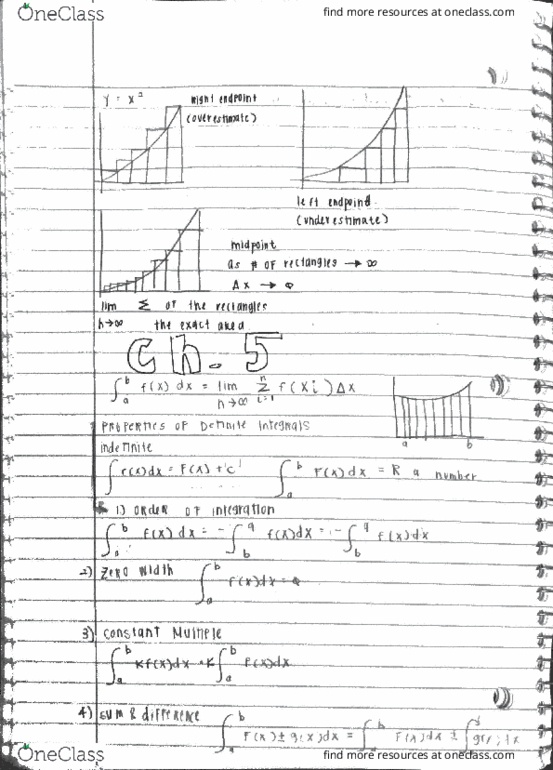 OneClass
find more resources at oneclass.com
y = x²
right endpoint
(overestimate)
left endpoint
(underestimate)
midpoint
as # of rectangles → ∞
Δx → 0
lim Σ of the rectangles
n→∞ the exact area
Ch. 5
∫ₐᵇ f(x) dx = lim n→∞ Σ i=1 n f(xi) Δx
a b
Properties of Definite Integrals
indefinite
∫ f(x)dx = F(x) + c ∫ₐᵇ f(x)dx = R a number
1) order of integration
∫ₐᵇ f(x) dx = - ∫ b a f(x)dx = - ∫ b a f(x)dx
2) zero width ∫ₐᵇ f(x)dx = 0
3) constant Multiple
∫ₐᵇ Kf(x)dx = K ∫ₐᵇ f(x)dx
4) sum & difference ∫ₐᵇ f(x) ± g(x)dx = ∫ₐᵇ f(x)dx ± ∫ g(x)dx
OneClass
find more resources at oneclass.com